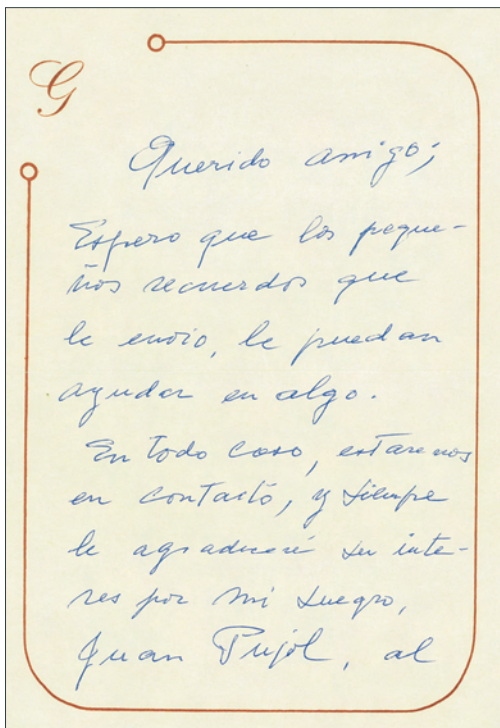 G
Querido amigo;
Espero que los peque-
ños recuerdos que
le envio, le puedan
ayudar en algo.
En todo caso, estaremos
en contacto, y siempre
le agradeceré su inte-
res por mi suegro,
Juan Pujol, al